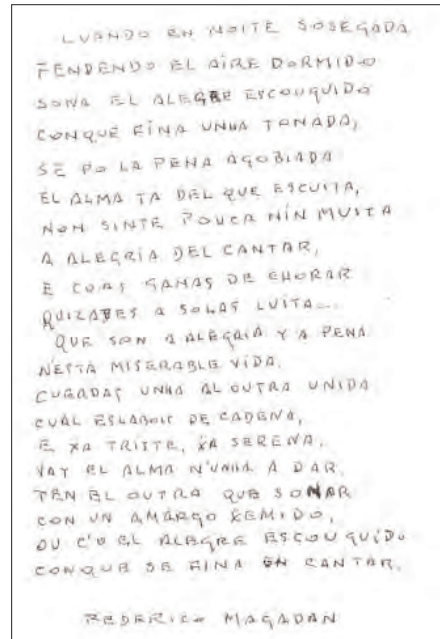 CUANDO EN NOITE SOSEGADA
FENDENDO EL AIRE DORMIDO
SONA EL ALEGRE ESCOUQUIDO
CONQUE FINA UNHA TONADA,
SE PO LA PENA AGOBIADA
EL ALMA TA DEL QUE ESCUITA,
NON SINTE POUCA NIN MUITA
A ALEGRIA DEL CANTAR,
E COAS GANAS DE CHORAR
QUIZABES A SOLAS LUITA...
QUE SON A ALEGRIA Y A PENA
NESTA MISERABLE VIDA.
CUGADAS UNHA AL OUTRA UNIDA
CUAL ESLABOIS DE CADENA,
E XA TRISTE, XA SERENA,
VAY EL ALMA N'UNHA A DAR.
TEN EL OUTRA QUE SONAR
CON UN AMARGO XEMIDO,
OU C'O EL ALEGRE ESCOUQUIDO
CONQUE SE FINA EN CANTAR.
FEDERICO MAGADAN